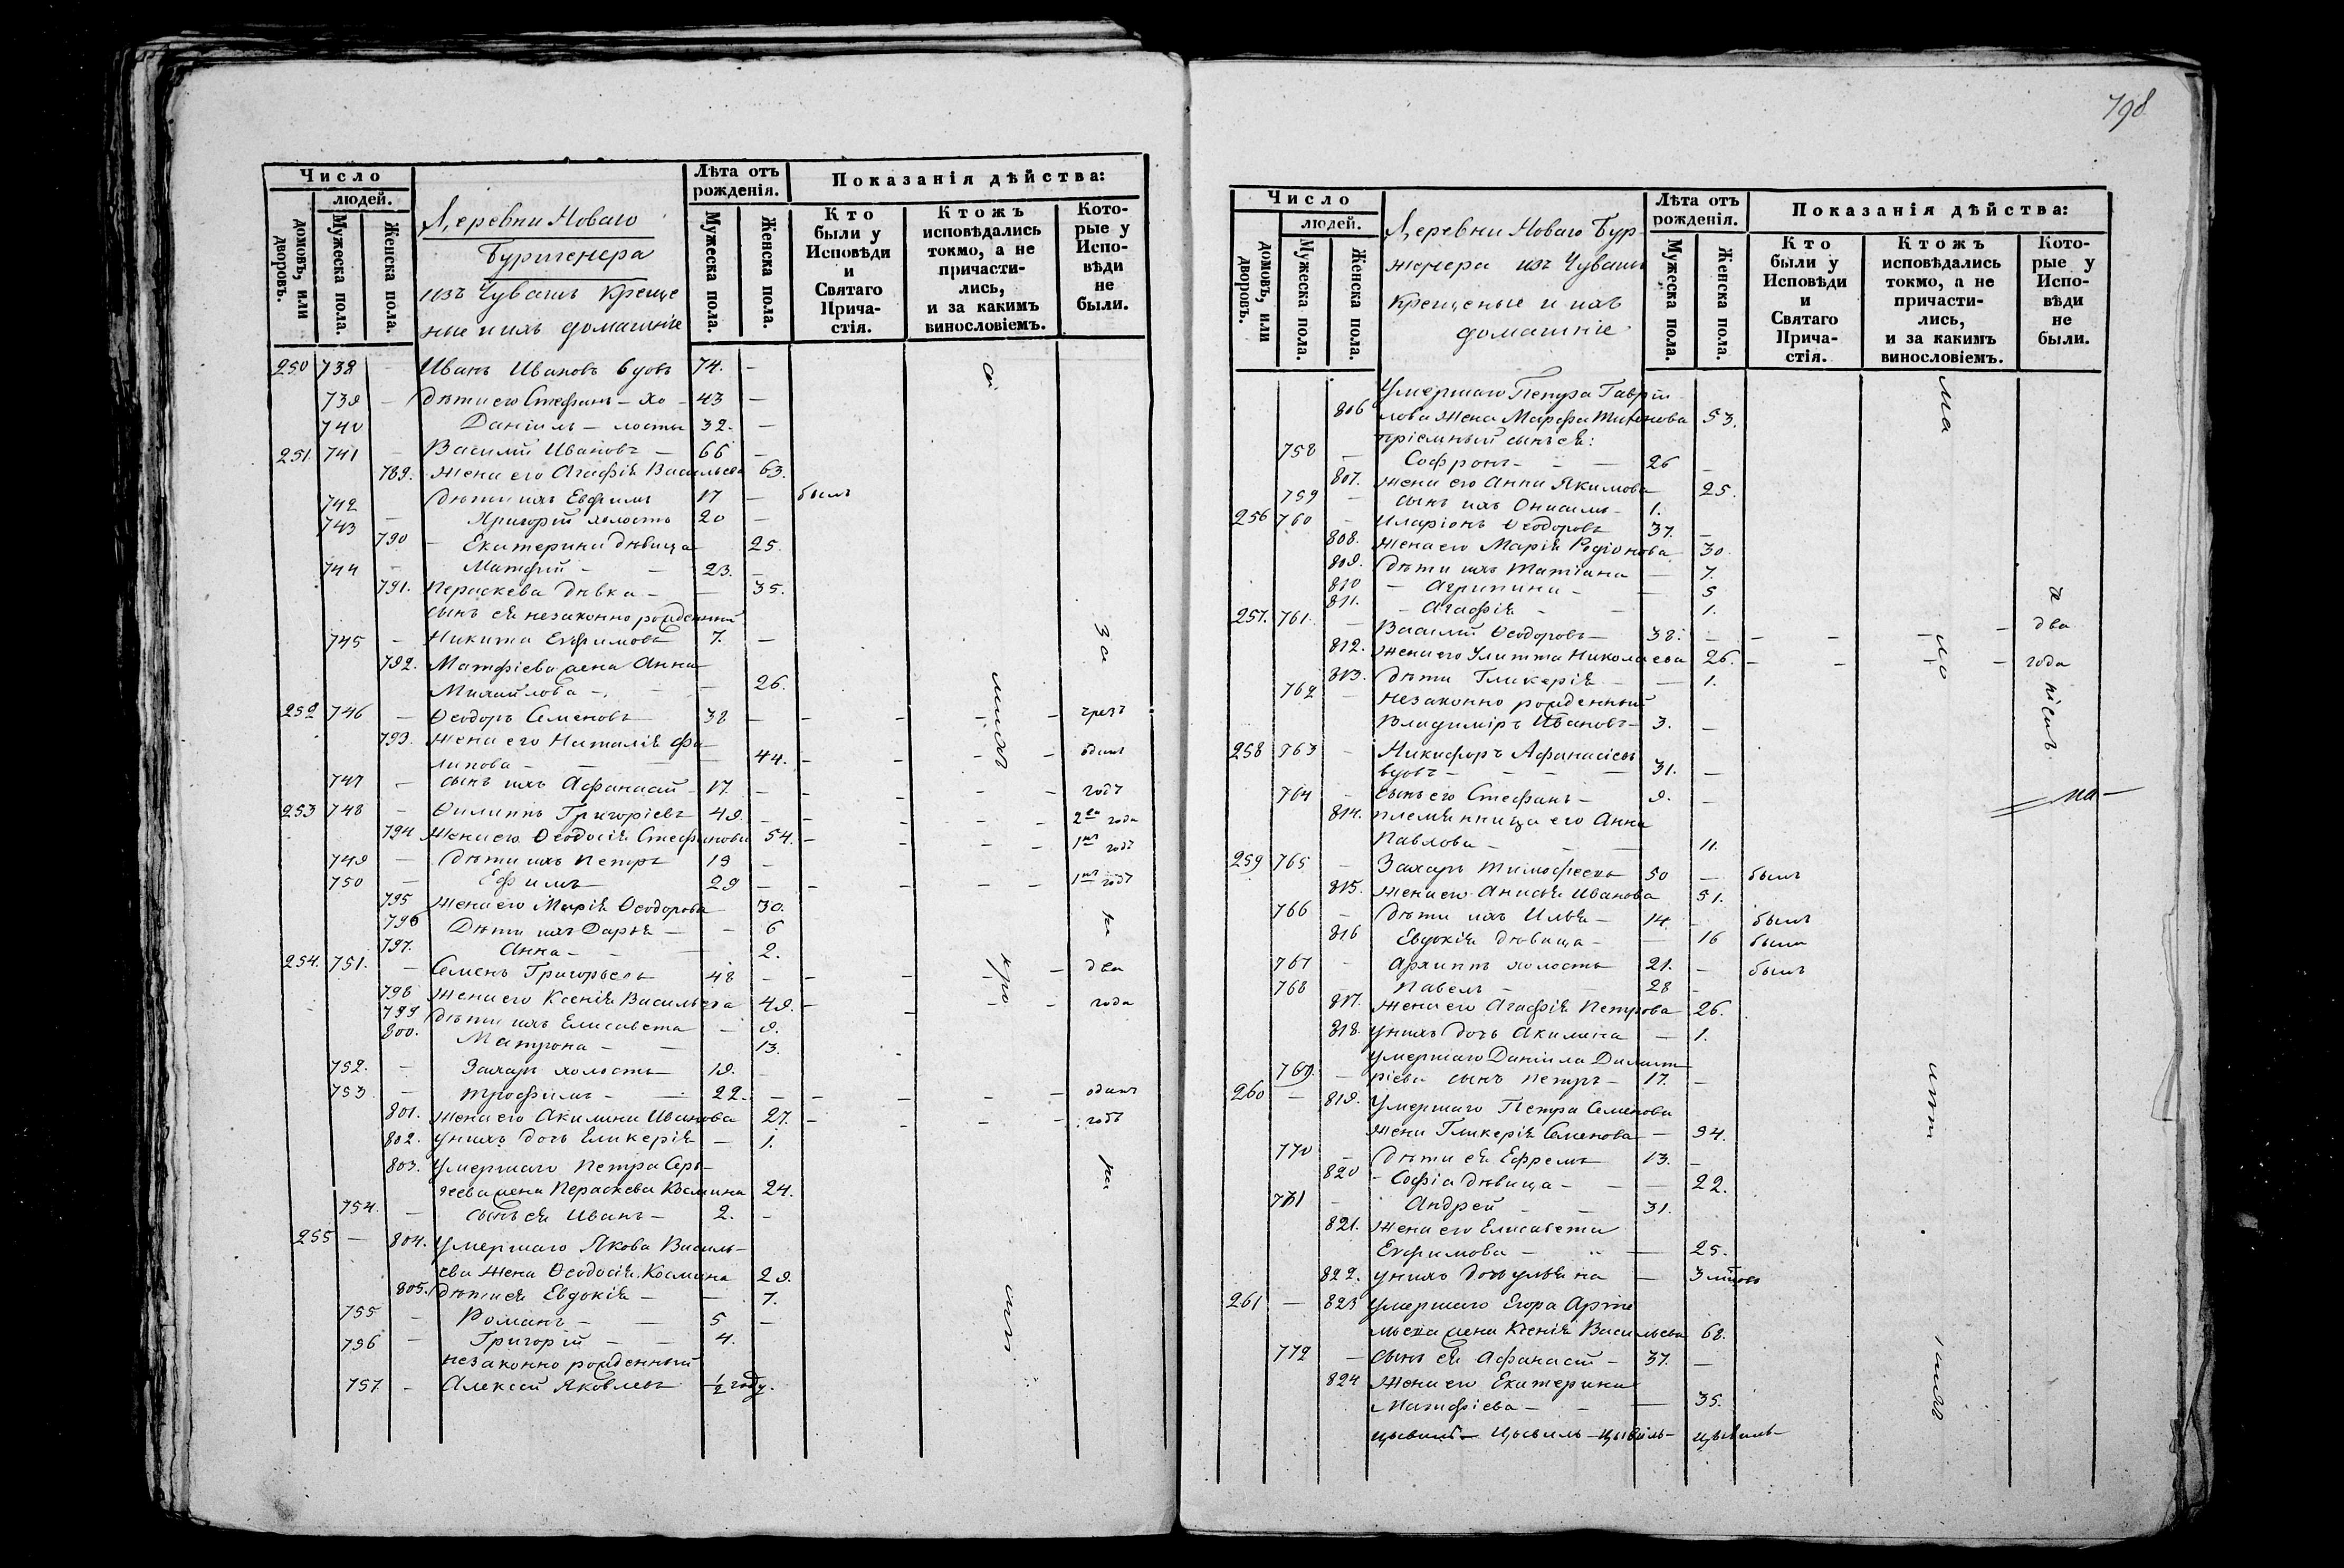 798
Число
людей.
домовъ, или дворовъ.
Мужеска пола.
Женска пола.
Деревни Новаго
изъ Чувашъ креще
ные и ихъ домашніе
Лѣта отъ рожденія.
Мужеска пола.
Женска пола.
Показанія дѣйства:
Кто были у Исповѣди и Святаго Прича-стія.
Ктожъ исповѣдались токмо, а не причасти-лись, и за какимъ винословіемъ.
Кото-рые у Испо-вѣди не были.
250 738 — Иванъ Ивановъ вдовъ 74. —
739 — Дѣти его Стефанъ — хо — 43 —
740 Даніилъ — лосты 32. —
251. 741 — Василій Ивановъ — 66 —
789. Жена его Агафія Васильева 63.
742 Дѣти ихъ Евфимъ 17 — былъ
743 — Григорій холостъ 20 —
790 — Екатерина дѣвица 25.
744 — Матфій — — 23. —
791. Параскева дѣвка — — 35.
сынъ ея незаконнорожденный
745 — Никита Евфимовъ 7. —
792. Матфіева жена Анна
Михайлова — — — 26.
252 746 — Ѳеодоръ Семеновъ 38 — — — — — чрезъ
793. Жена его Наталія Фи
липова — — — 44. — — — — одинъ
747 — сынъ ихъ Афанасій — 17. — — — — — годъ
253 748 — Филиппъ Григоріевъ 49. — — — — — 2ва года
794 Жена его Ѳеодосія Стефанова 54. — — — — 1нъ годъ
749 — Дѣти ихъ Петръ 19 —
750 — Ефимъ 29 — — — — — 1нъ годъ
795 Жена его Марія Ѳеодорова 30.
796 Дѣти ихъ Дарья — — 6
797. Анна — — 2.
254. 751. — Семенъ Григорьевъ 48 — — — — — два
798 Жена его Ксенія Васильева 49. — — — — года
799 Дѣти ихъ Елисавета — 9.
800. Матрона — — 13.
752. — Захаръ холостъ 19. —
753 — Трофимъ — — 22. — — — — — одинъ
801. Жена его Акилина Иванова 27. — — — — годъ
802. у нихъ дочь Гликерія — 1.
803. Умершаго Петра Сер-
геева жена Параскева Космина 24.
754. — сынъ ея Иванъ — 2. —
255 — 804. Умершаго Якова Василь-
ева жена Ѳеодосія Космина 29.
805. Дѣти ея Евдокія — — 7.
755 — Романъ — — 5 —
756 — Григорій — — 4.
незаконнорожденный
757. — Алексѣй Яковлевъ ½ году.
Число
людей.
домовъ, или дворовъ.
Мужеска пола.
Женска пола.
Деревни Новаго Бур
изъ Чувашъ
крещеные и ихъ
домашніе
Лѣта отъ рожденія.
Мужеска пола.
Женска пола.
Показанія дѣйства:
Кто были у Исповѣди и Святаго Прича-стія.
Ктожъ исповѣдались токмо, а не причасти-лись, и за какимъ винословіемъ.
Кото-рые у Испо-вѣди не были.
Умершаго Петра Гаврій
806 лова жена Марфа 53.
пріемный сынъ ея:
758 — Софронъ — — — 26 —
807. Жена его Анна Якимова 25.
759 — сынъ ихъ Онисимъ — 1.
256 760 — Иларіонъ Ѳеодоровъ 37. —
808. Жена его Марія Родіонова — 30.
809. Дѣти ихъ Татіана — 7.
810 — Агрипина — — 5
811. — Агафія — — 1.
257. 761. — Василій Ѳеодоровъ — 38. — — — — — два
812. Жена его Улитта Николаева 26. — — — — года
813. Дѣти Гликерія — — 1.
762 — незаконно рожденный
Владиміръ Ивановъ — 3. —
258 763 — Никифоръ Афанасіевъ
вдовъ — — — — 31. —
764 — сынъ его Стефанъ — 9. —
814. племянница его Анна
Павлова — — — 11.
259 765 — Захаръ Тимофеевъ 50 — былъ
815. Жена его Анисія Иванова 51.
766 — Дѣти ихъ Илья — 14. — былъ
816 Евдокія дѣвица — — 16 была
767 — Архиппъ холостъ 21. — былъ
768 — Павелъ — — 28 —
817. Жена его Агафія Петрова 26.
818. у нихъ дочь Акилина — 1.
Умершаго Даніила Димит
769. — ріева сынъ Петръ — 17. —
260 — 819. Умершаго Петра Семенова
жена Гликерія Семенова — 94.
770 — Дѣти ея Ефремъ 13. —
820 — Софіа дѣвица — — 22.
771 — Андрей — — 31.
821. Жена его Елисавета
Евфимова — — 25.
822. у нихъ дочь Ульяна — 3
261 — 823 Умершаго Егора Арте
мьева жена Ксенія Васильева 68.
772 — сынъ ея Афанасій — 37. —
824 Жена его Екатерина
Матфіева — — — 35.